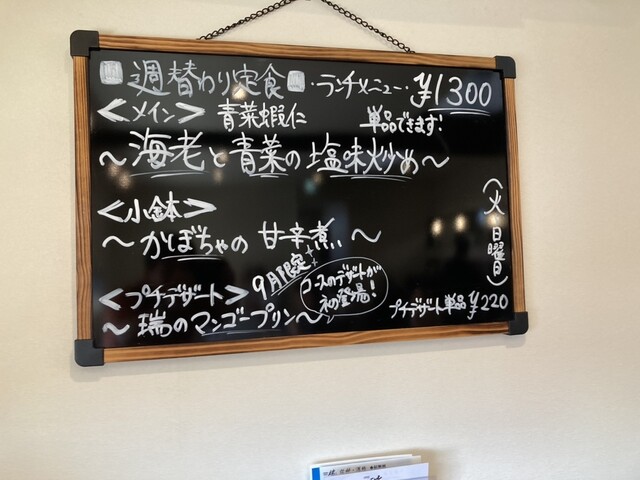 週替わり定食 ・ランチメニュー・ ¥1300
<メイン> 青菜蝦仁 単品できます!
～海老と青菜の塩味炒め～
(火曜日)
<小鉢>
～かぼちゃの甘辛煮～
<プチデザート> 9月限定
コースのデザートが
初登場!
～瑞のマンゴープリン～
プチデザート単品¥220